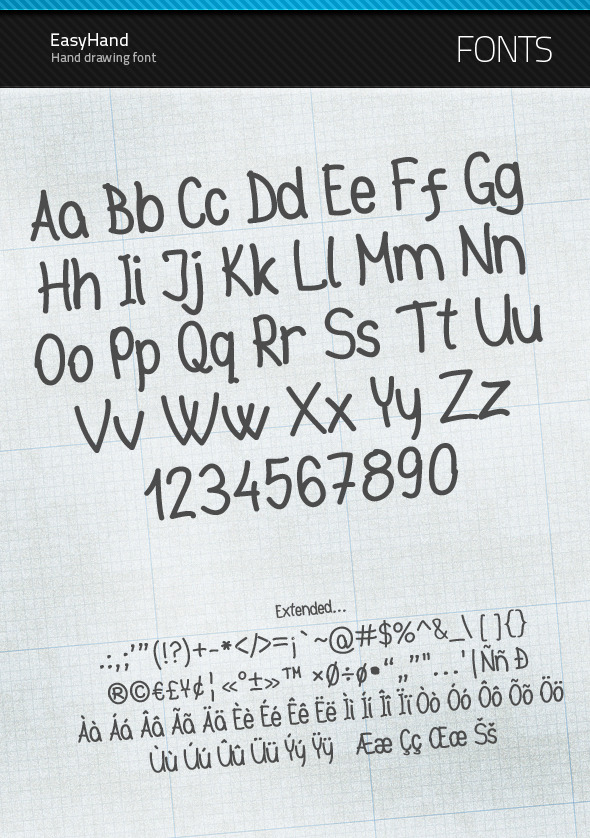 EasyHand
Hand drawing font
FONTS
Aa Bb Cc Dd Ee Ff Gg
Hh Ii Jj Kk Ll Mm Nn
Oo Pp Qq Rr Ss Tt Uu
Vv Ww Xx Yy Zz
1234567890
Extended...
.:,;'"(!?)+-*</>=¡`~@#$%^&_\[]{}
®©€£¥¢¦«º±»™×Ø÷ø•“„”"…'|Ññ Ð
Àà Áá Ââ Ãã Ää Èè Éé Êê Ëë Ìì Íí Îî Ïï Òò Óó Ôô Õõ Öö
Ùù Úú Ûû Üü Ýý Ÿÿ Ææ Çç Œœ Šš